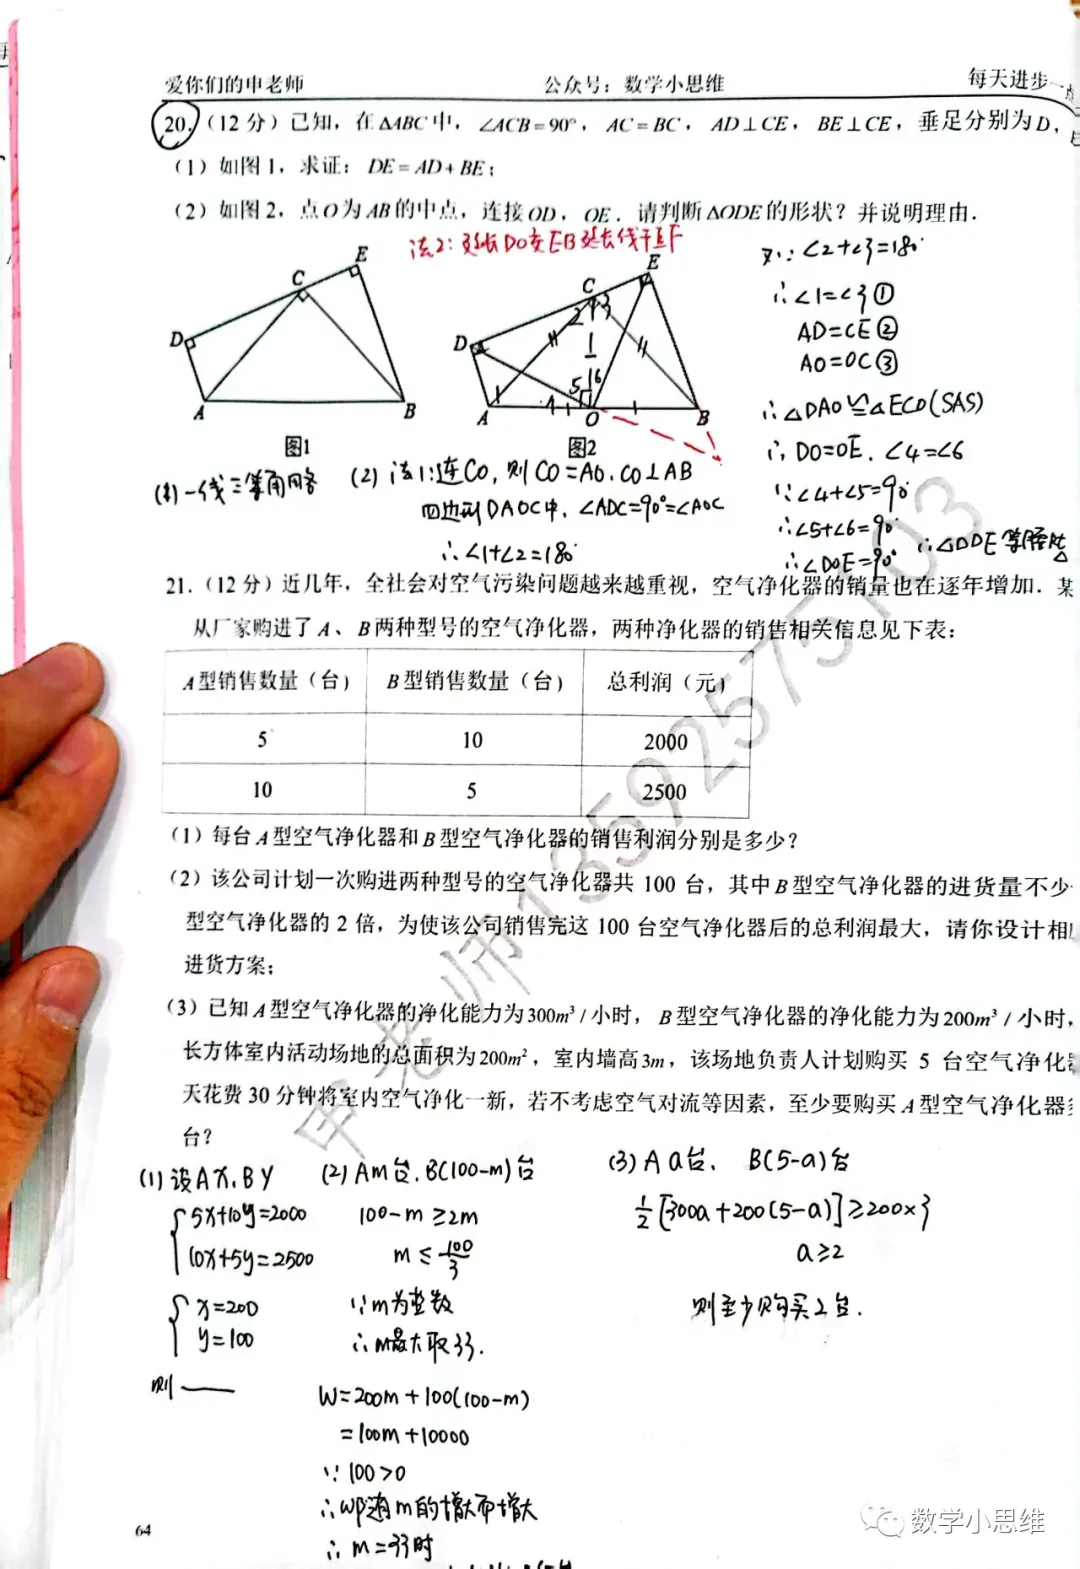 爱你们的申老师 公众号：数学小思维 每天进步一点
20.（12 分）已知，在△ABC 中，∠ACB=90°，AC=BC，AD⊥CE，BE⊥CE，垂足分别为D，E
（1）如图1，求证：DE=AD+BE；
（2）如图2，点O为AB的中点，连接OD，OE．请判断△ODE的形状？并说明理由．
法2：延长DO交EB延长线于点F
又∵∠2+∠3=180°
∴∠1=∠3①
AD=CE②
AO=OC③
∴△DAO≌△ECO(SAS)
∴DO=OE，∠4=∠6
∵∠4+∠5=90°
∴∠5+∠6=90°
∴∠DOE=90° ∴△ODE等腰Rt△
D C E A B
图1
D C E A O B 2 3 1 4 5 6
图2
(1)一线三等角
(2) 法1：连CO，则CO=AO，CO⊥AB
四边形DAOC中，∠ADC=90°=∠AOC
∴∠1+∠2=180°
21.（12 分）近几年，全社会对空气污染问题越来越重视，空气净化器的销量也在逐年增加．某
从厂家购进了 A、B两种型号的空气净化器，两种净化器的销售相关信息见下表：
A型销售数量（台） B型销售数量（台） 总利润（元）
5 10 2000
10 5 2500
（1）每台A型空气净化器和B型空气净化器的销售利润分别是多少？
（2）该公司计划一次购进两种型号的空气净化器共 100 台，其中B型空气净化器的进货量不少
型空气净化器的 2 倍，为使该公司销售完这 100 台空气净化器后的总利润最大，请你设计相
进货方案；
（3）已知A型空气净化器的净化能力为300m³/小时，B型空气净化器的净化能力为200m³/小时，
长方体室内活动场地的总面积为200m²，室内墙高3m，该场地负责人计划购买 5 台空气净化
天花费 30 分钟将室内空气净化一新，若不考虑空气对流等因素，至少要购买A型空气净化器
台？
申老师13592575103
(1) 设A x，B y
{5x+10y=2000
10x+5y=2500
{x=200
y=100
则——
(2) A m台，B(100-m)台
100-m≥2m
m≤100/3
∵m为整数
∴m最大取33．
W=200m+100(100-m)
=100m+10000
∵100>0
∴W随m的增大而增大
∴m=33时
(3) A a台，B(5-a)台
1/2[300a+200(5-a)]≥200×3
a≥2
则至少购买2台．
64
数学小思维